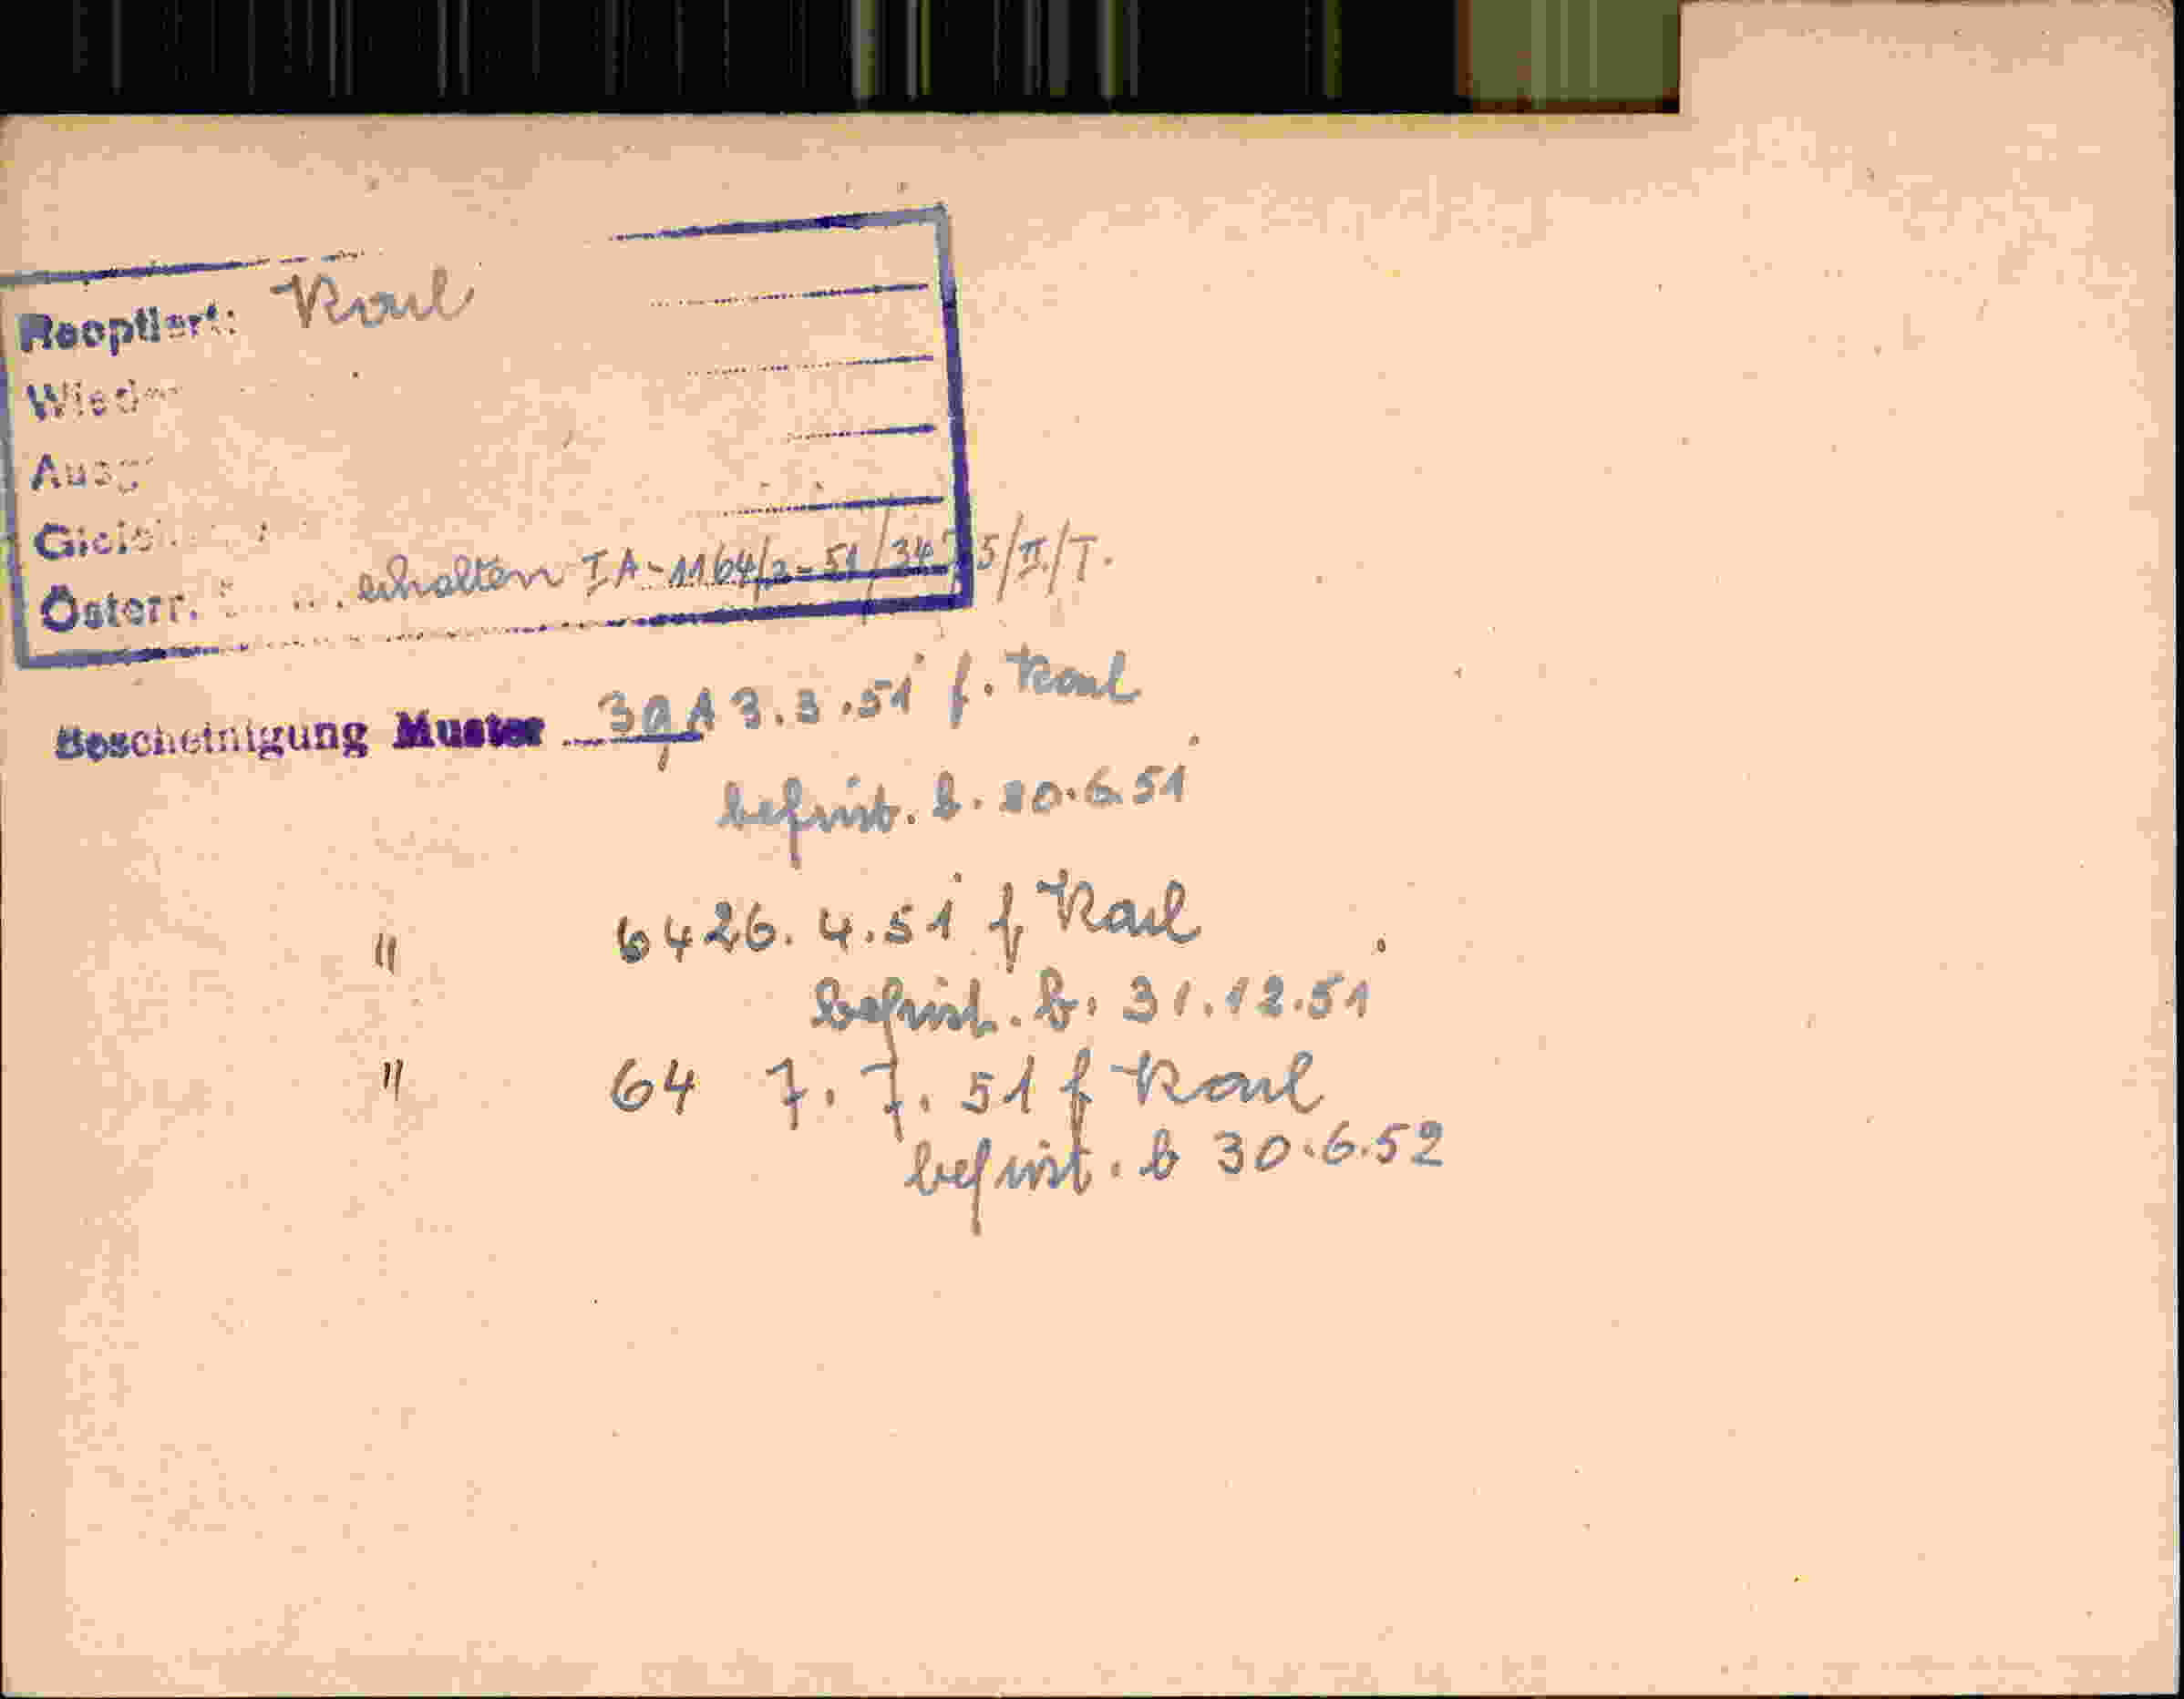 Reoptiert: Karl
Wieder
Ausg
Gleich
Österr. erhalten IA-1164/2-51/34 5/II/T.
Bescheinigung Muster 39A 3.3.51 f. Karl
befrist. b. 30.6.51
" 64 26.4.51 f Karl
befrist. b. 31.12.51
" 64 7.7.51 f Karl
befrist. b 30.6.52